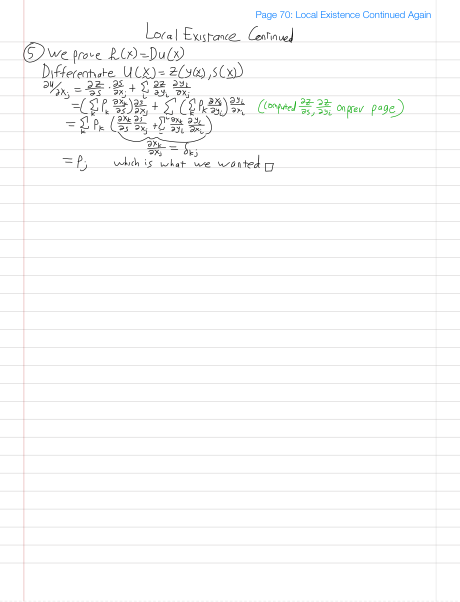 Page 70: Local Existence Continued Again
Local Existance Continued
⑤ We prove P(x)=Du(x)
Differentiate U(X) = Z(y(x), s(x))
∂u/∂x_j = ∂z/∂s · ∂s/∂x_j + Σ_i ∂z/∂y_i ∂y_i/∂x_j
= (Σ_k P_k ∂x_k/∂s) ∂s/∂x_j + Σ_i (Σ_k P_k ∂x_k/∂y_i) ∂y_i/∂x_i (computed ∂z/∂s, ∂z/∂y_i on prev page)
= Σ_k P_k (∂x_k/∂s ∂s/∂x_j + Σ_i ∂x_k/∂y_i ∂y_i/∂x_i)
∂x_k/∂x_j = δ_kj
= P_j which is what we wanted □